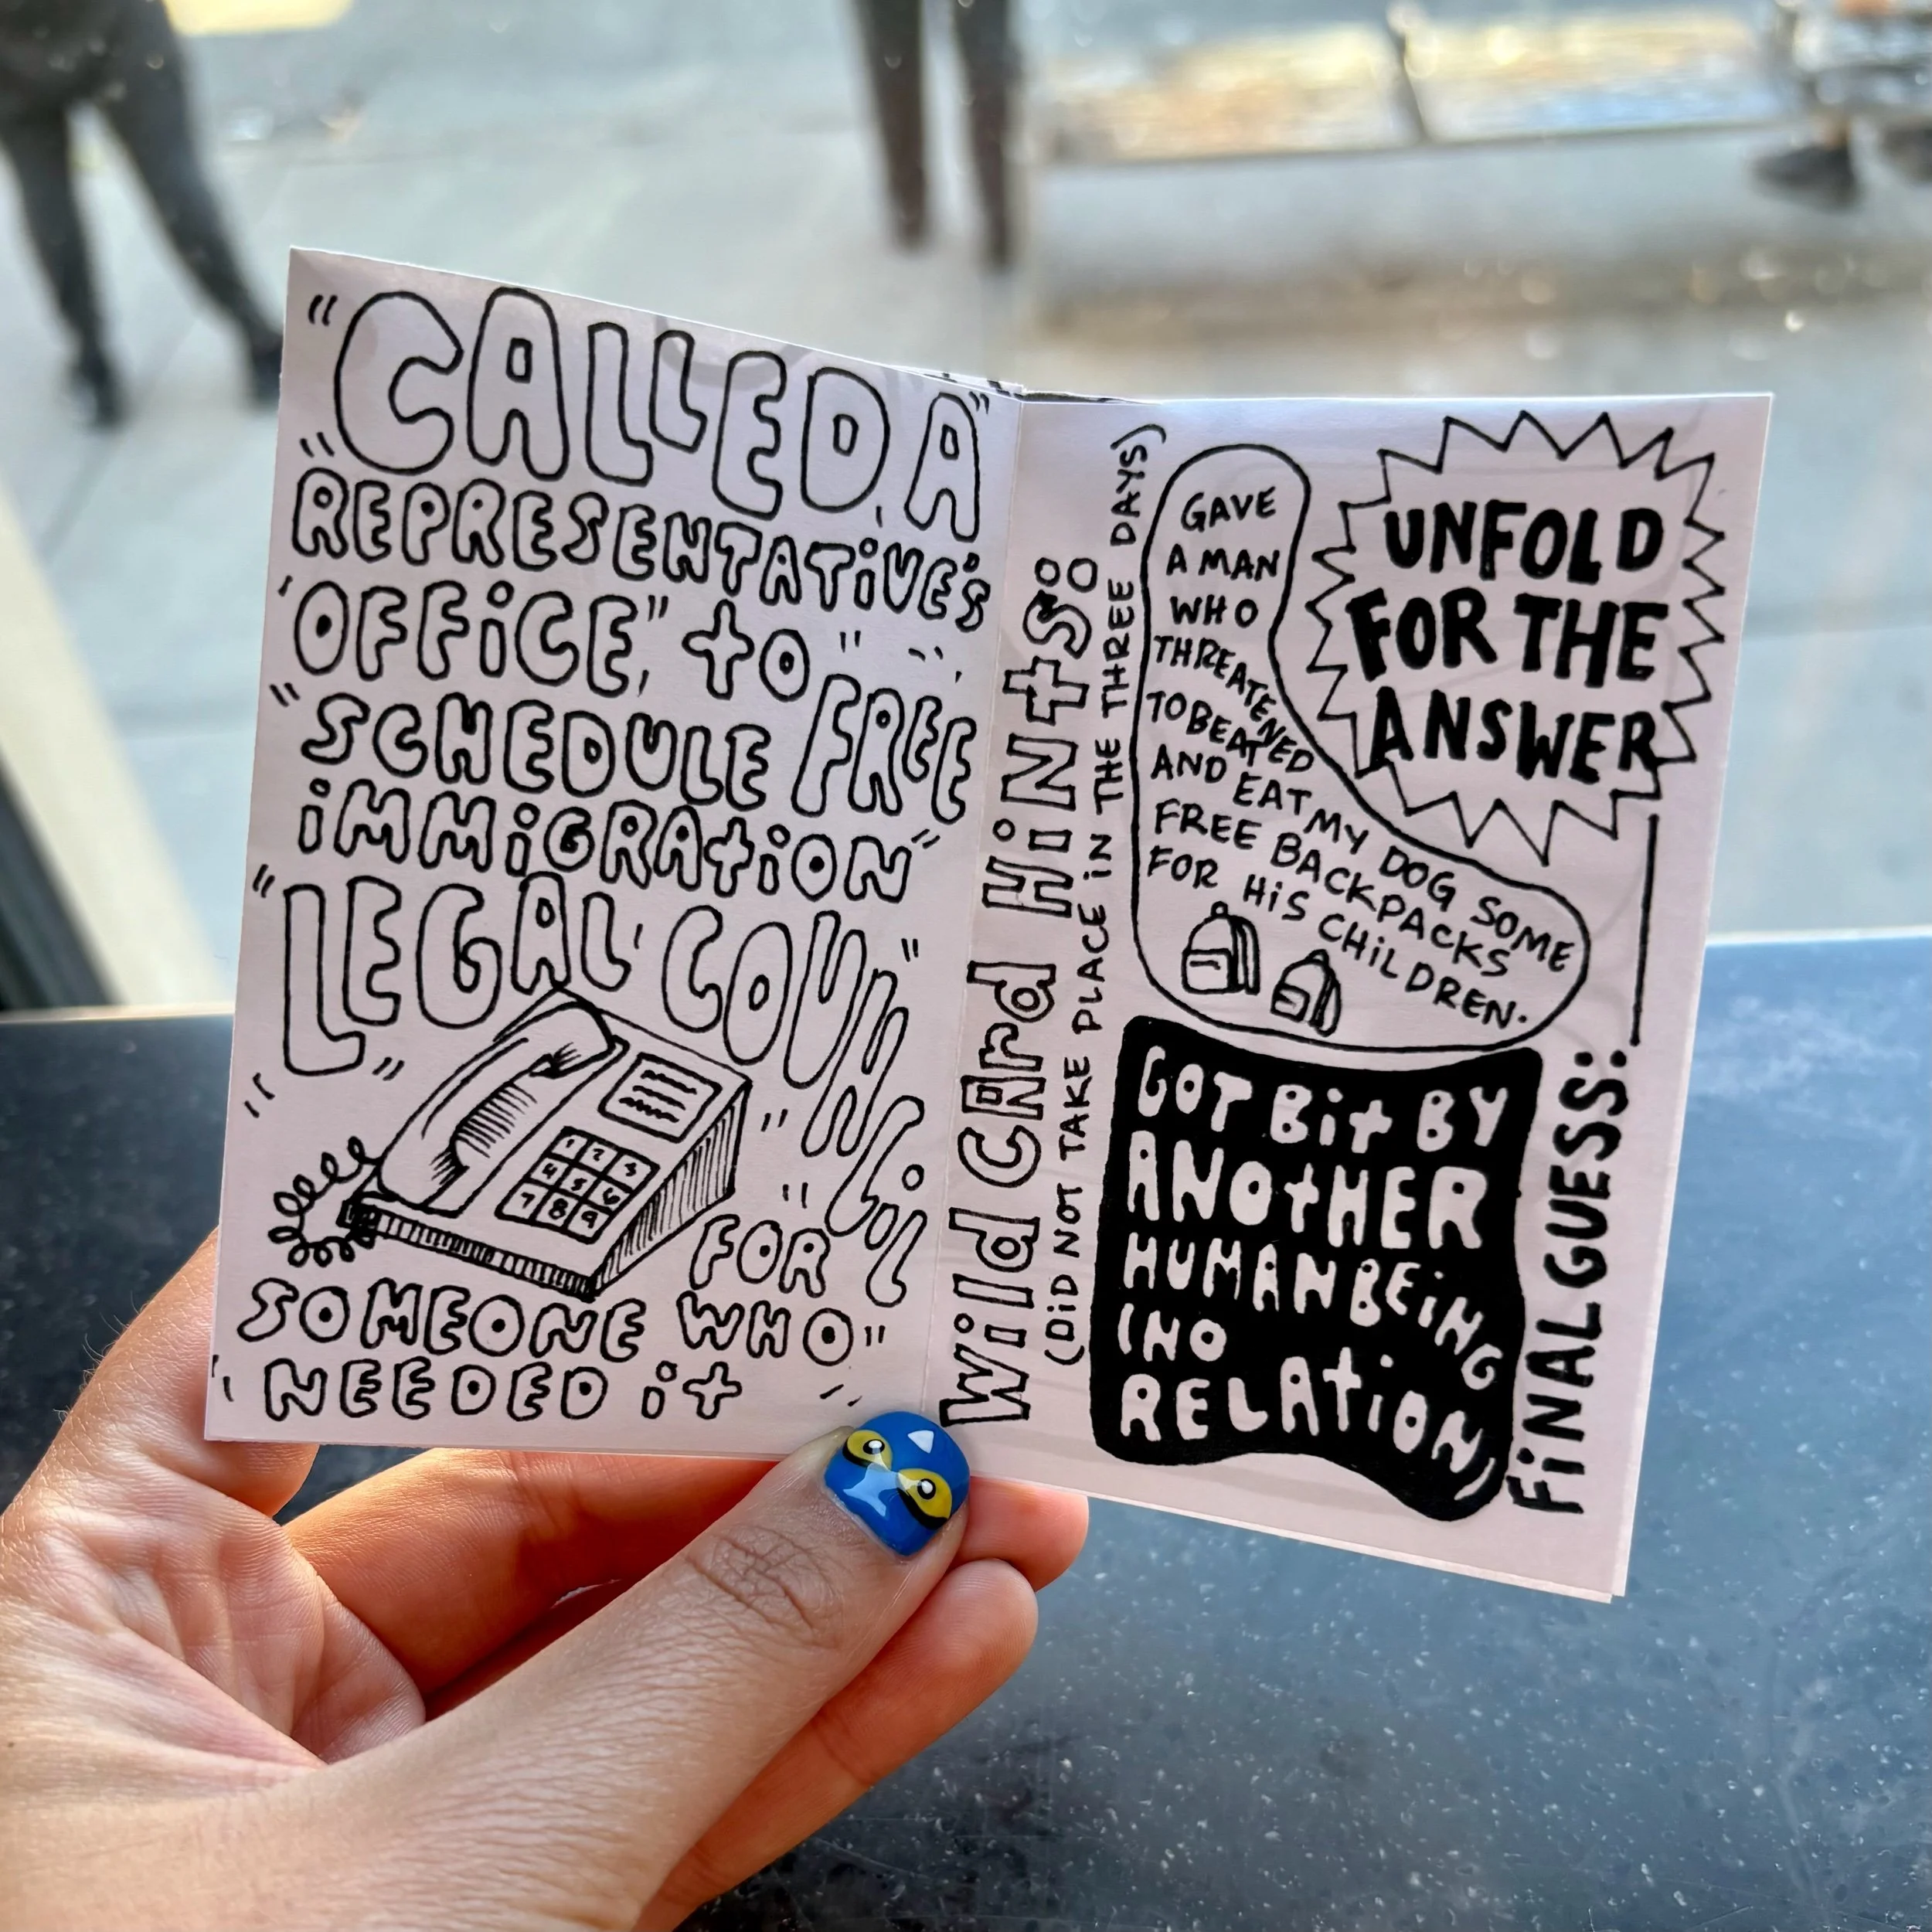 "CALLED A"
"REPRESENTATIVE'S
OFFICE," to "
"SCHEDULE FREE
iMMiGRAtiON"
"LEGAL COUNCiL"
1 2 3
4 5 6
7 8 9
" FOR
SOMEONE WHO "
NEEDED it
Wild CArd HiNtS:
(DiD NOT TAKE PLACE iN THE THREE DAYS)
GAVE
A MAN
WHO
THREATENED
TO BEAT
AND EAT MY DOG SOME
FREE BACKPACKS
FOR HiS CHiLDREN.
UNFOLD
FOR THE
ANSWER
GOT Bit BY
ANOtHER
HUMAN BEiNG
(NO
RELAtiON)
FiNAL GUESS: